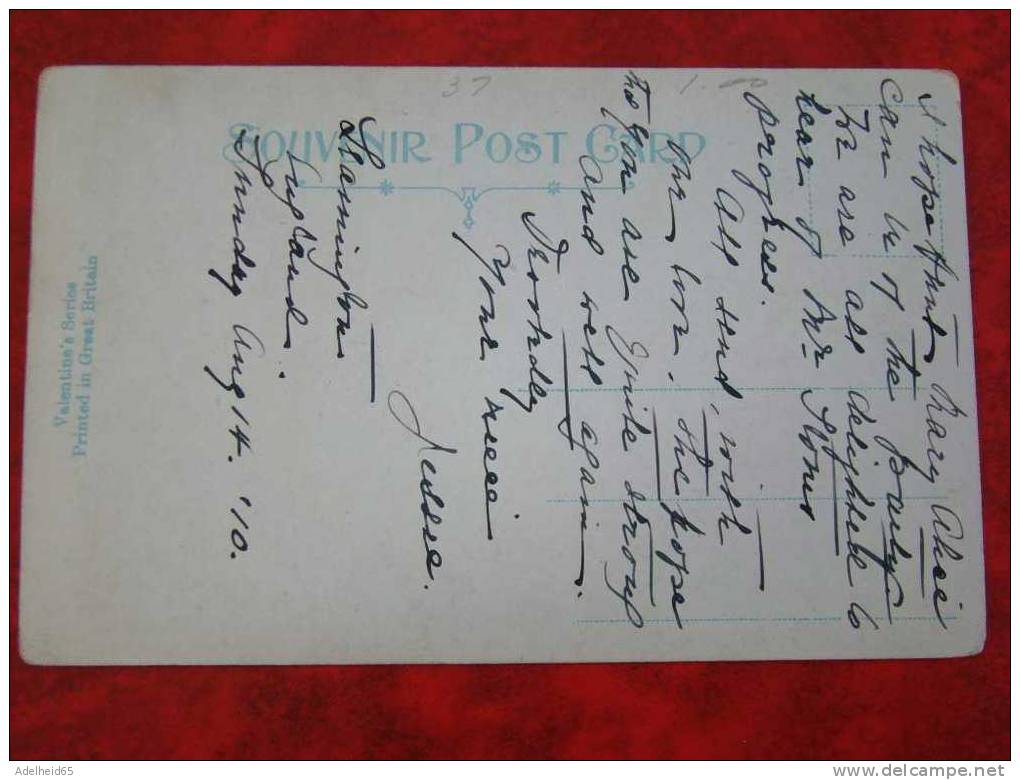 37
1.00
SOUVENIR POST CARD
I hope Aunt Mary Alice
can be of the party
We are all delighted to
hear of Mr
progress.
All send, with
our love, the hope
that you are quite strong
and well again.
Your niece
Jessie.
Leamington
England.
Sunday Aug 14. '10.
Valentine's Series
Printed in Great Britain
Adelheid65
www.delcampe.net